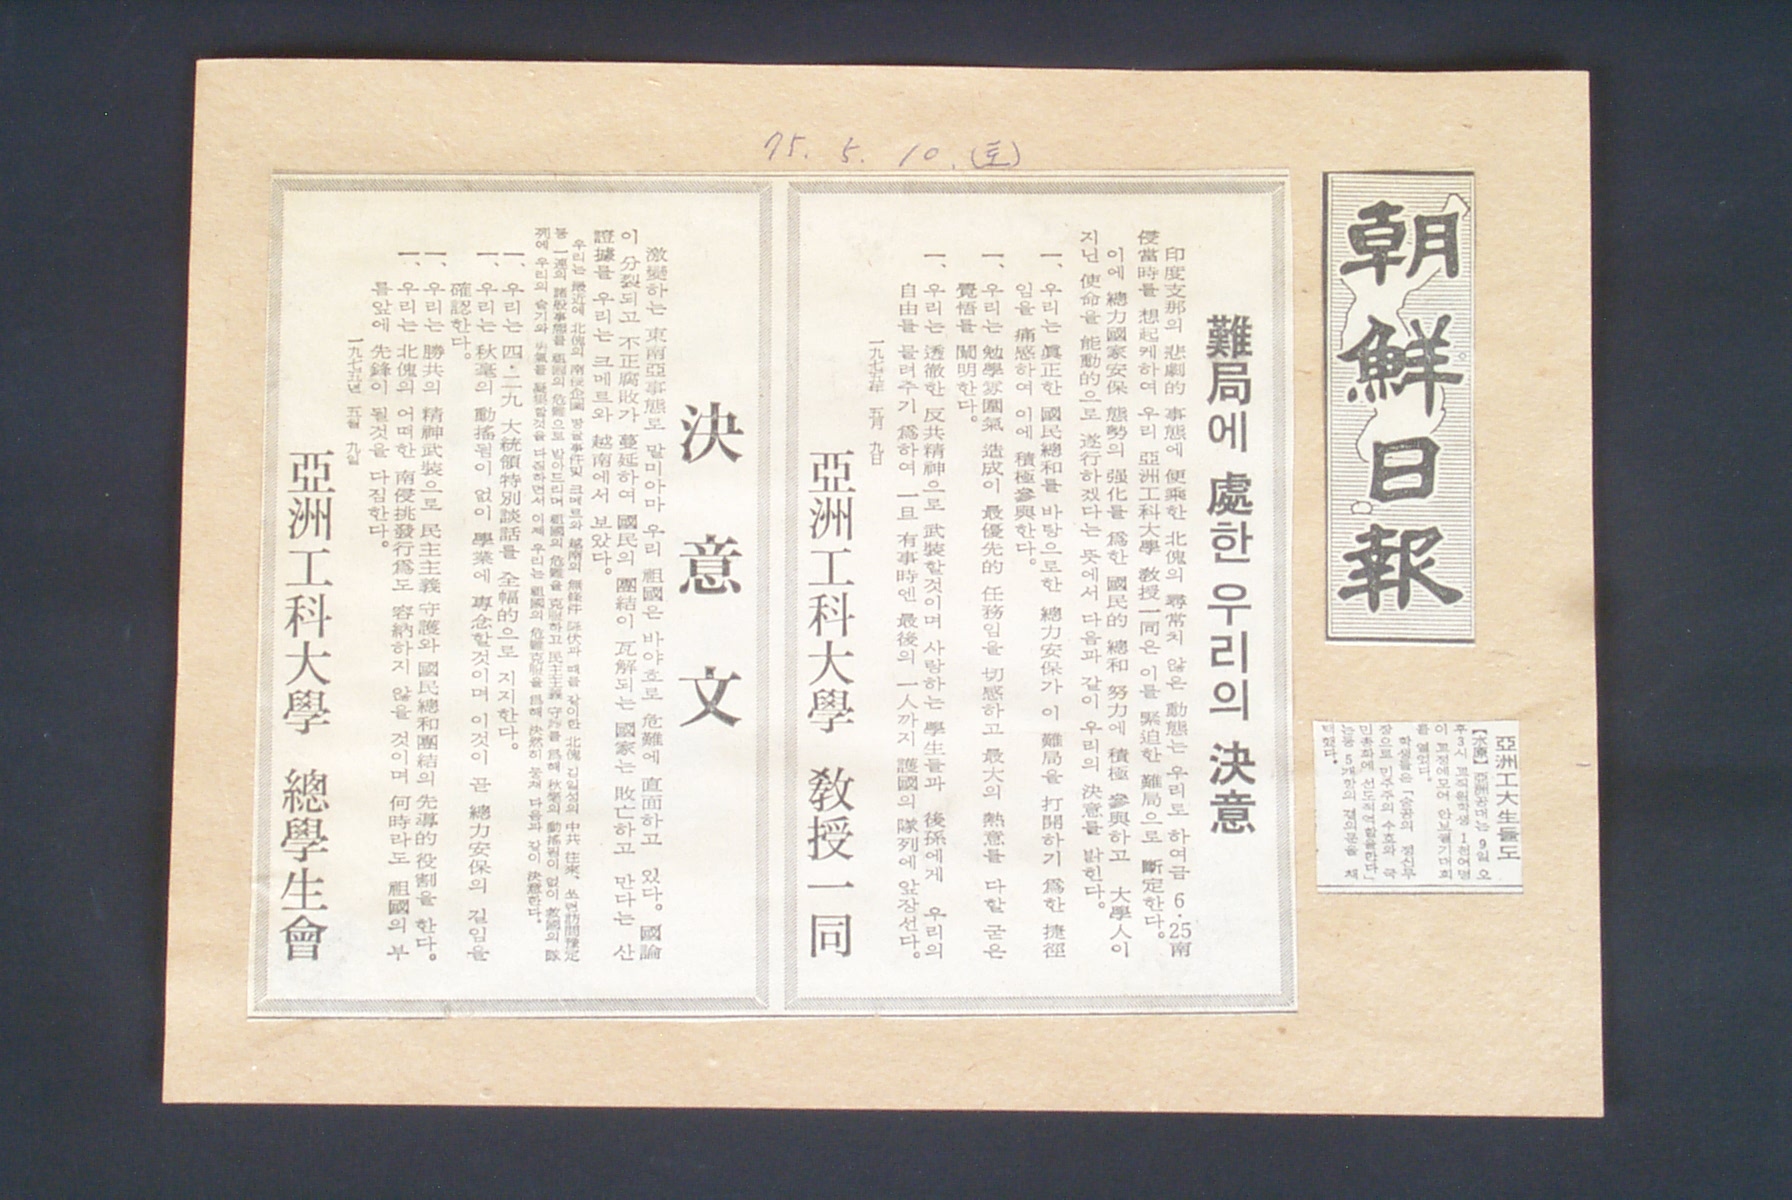 75. 5. 10. (토)
朝鮮日報
亞洲工大生들도
【水原】亞洲工大는 9일 오
후3시 교직원학생 1천여명
이 교정에모여 안보궐기대회
를 열었다.
학생들은 「승공의 정신무
장으로 민주주의 수호와 국
민총화에 선도적역할을한다」
는등 5개항의 결의문을 채
택했다.
難局에 處한 우리의 決意
印度支那의 悲劇的 事態에 便乘한 北傀의 尋常치 않은 動態는 우리로 하여금 6·25南
侵當時를 想起케하여 우리 亞洲工科大學 敎授一同은 이를 緊迫한 難局으로 斷定한다.
이에 總力國家安保 態勢의 强化를 爲한 國民的 總和 努力에 積極 參與하고 大學人이
지닌 使命을 能動的으로 遂行하겠다는 뜻에서 다음과 같이 우리의 決意를 밝힌다.
一、우리는 眞正한 國民總和를 바탕으로한 總力安保가 이 難局을 打開하기 爲한 捷徑
임을 痛感하여 이에 積極參與한다.
一、우리는 勉學雰圍氣 造成이 最優先的 任務임을 切感하고 最大의 熱意를 다할 굳은
覺悟를 闡明한다.
一、우리는 透徹한 反共精神으로 武裝할것이며 사랑하는 學生들과 後孫에게 우리의
自由를 물려주기 爲하여 一旦 有事時엔 最後의 一人까지 護國의 隊列에 앞장선다.
一九七五年 五月 九日
亞洲工科大學 敎授一同
決意文
激變하는 東南亞事態로 말미아마 우리 祖國은 바야흐로 危難에 直面하고 있다. 國論
이 分裂되고 不正腐敗가 蔓延하여 國民의 團結이 瓦解되는 國家는 敗亡하고 만다는 산
證據를 우리는 크메르와 越南에서 보았다.
우리는 最近에 北傀의 南侵企圖 땅굴事件및 크메르와 越南의 無條件 降伏과 때를 같이한 北傀 김일성의 中共 往來、쏘련訪問豫定
등 一連의 諸般事態를 祖國의 危難으로 받아드리며 祖國의 危難을 克服하고 民主主義 守護를 爲해 秋毫의 動搖됨이 없이 救國의 隊
列에 우리의 슬기와 勇氣를 凝集할것을 다짐하면서 이제 우리는 祖國의 危難克服을 爲해 決然히 뭉쳐 다음과 같이 決意한다.
一、우리는 四·二九 大統領特別談話를 全幅的으로 지지한다.
一、우리는 秋毫의 動搖됨이 없이 學業에 專念할것이며 이것이 곧 總力安保의 길임을
確認한다.
一、우리는 勝共의 精神武裝으로 民主主義 守護와 國民總和團結의 先導的 役割을 한다.
一、우리는 北傀의 어떠한 南侵挑發行爲도 容納하지 않을 것이며 何時라도 祖國의 부
름앞에 先鋒이 될것을 다짐한다.
一九七五년 五월 九일
亞洲工科大學 總學生會